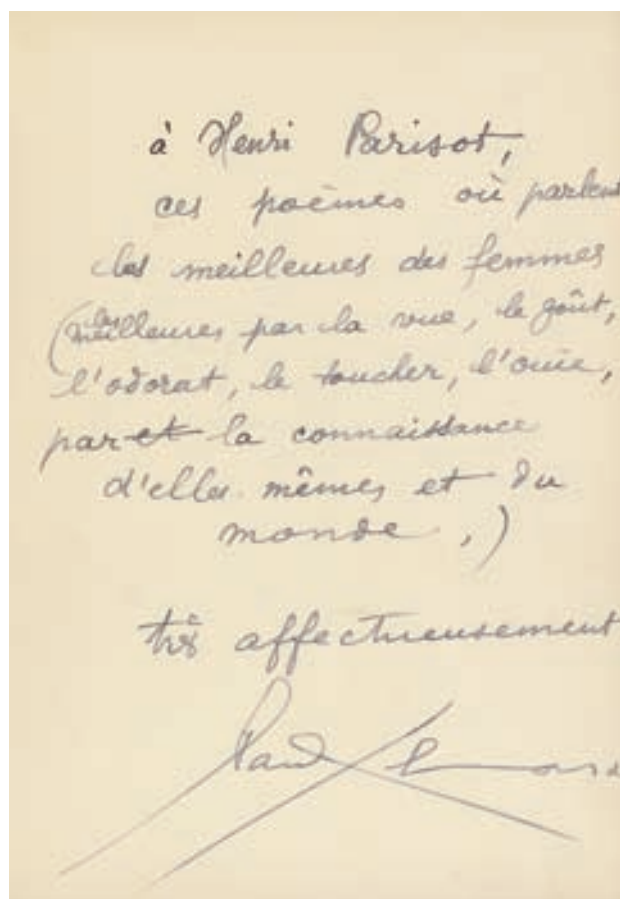 à Henri Parisot,
ces poèmes où parlent
les meilleures des femmes
(les meilleures par la vue, le goût,
l'odorat, le toucher, l'ouïe,
par et la connaissance
d'elles mêmes et du
monde,)
très affectueusement
Paul Eluard